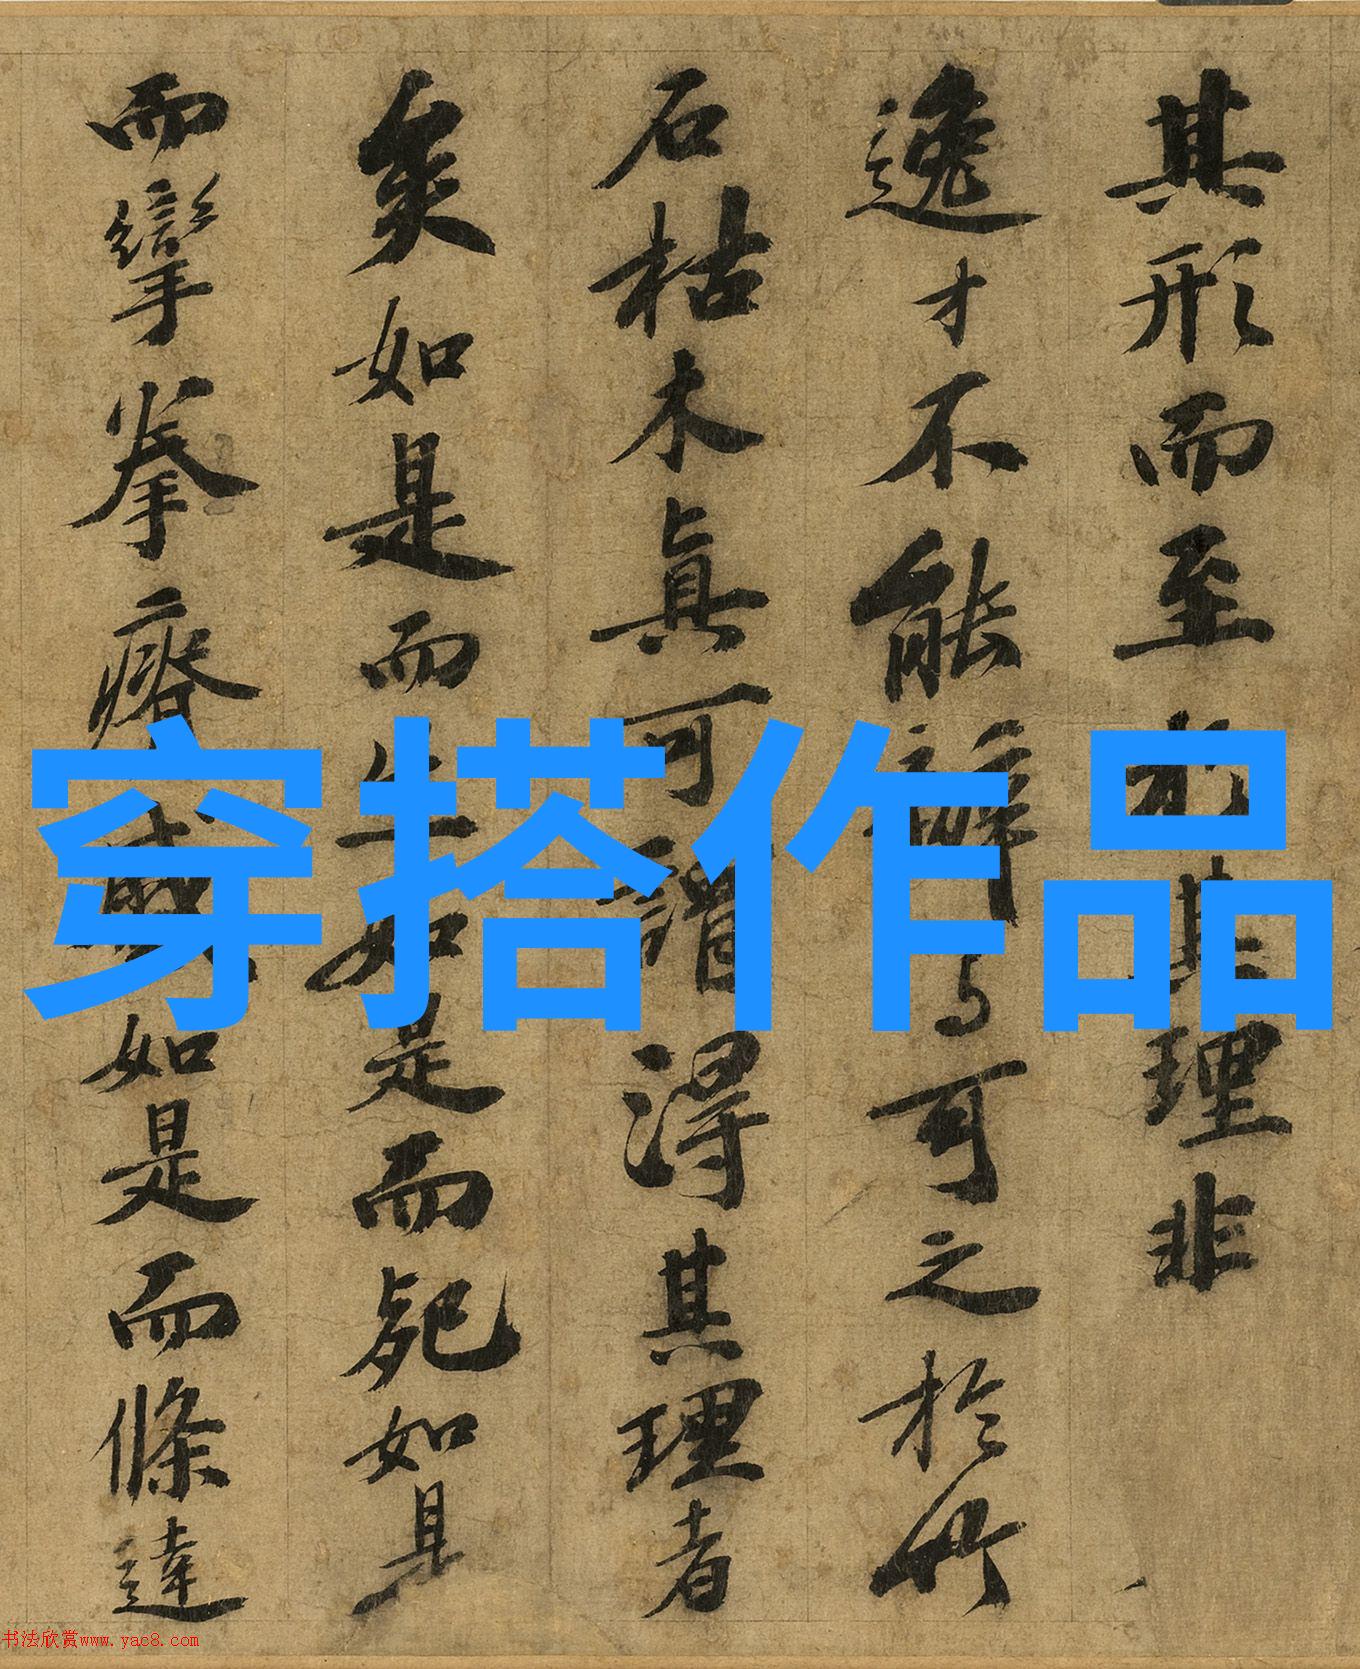 其形而至於其理非
逸才不能辨与可之於竹
石枯木眞可謂得其理者
矣如是而生如是而死如是
而攣拳瘠蹙如是而條達
穿搭作品
书法欣赏www.yac8.com